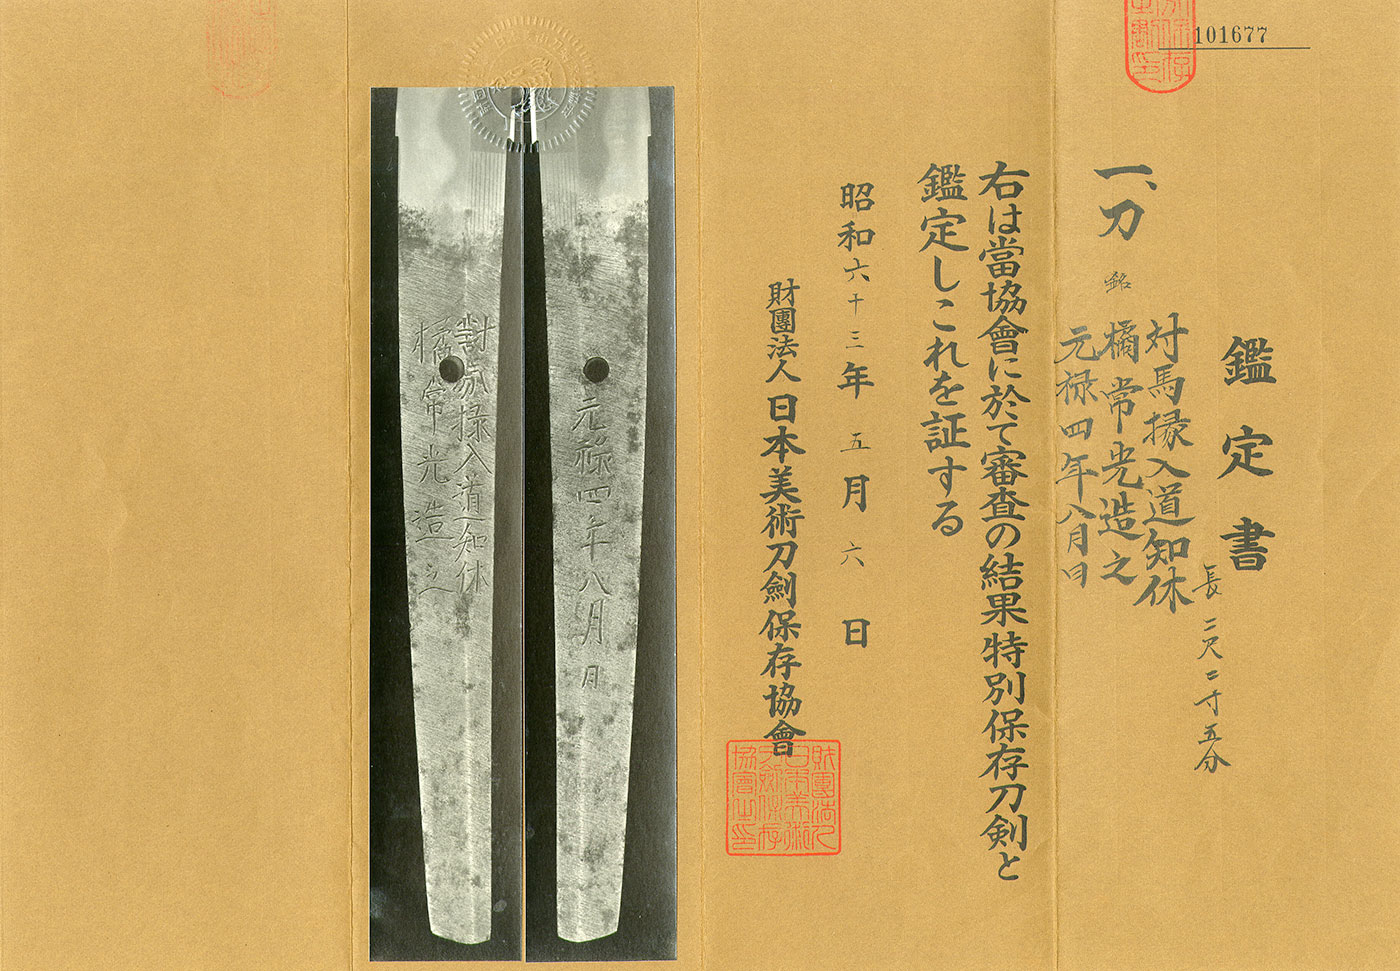 101677
鑑定書
一、刀
銘
対馬掾入道知休
橘常光造之
元禄四年八月日
長二尺二寸五分
右は當協會に於て審査の結果特別保存刀剣と
鑑定しこれを証する
昭和六十三年五月六日
財團法人日本美術刀劍保存協會
財團法人
日本美術
刀劍保存
協會之印
元禄四年八月日
對馬掾入道知休
橘常光造之